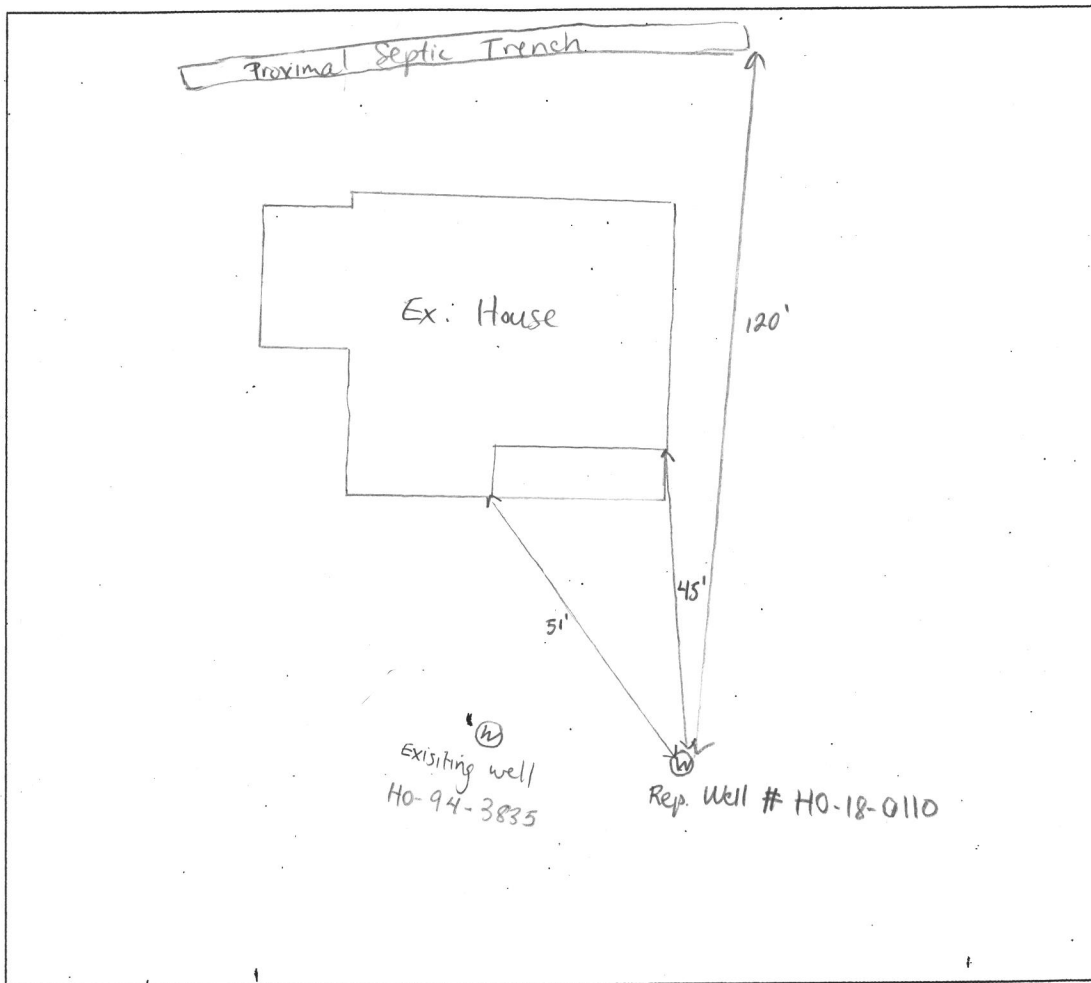 Proximal Septic Trench
Ex: House
120'
45'
51'
W
Exisiting well
HO-94-3835
W
Rep. Well # HO-18-0110